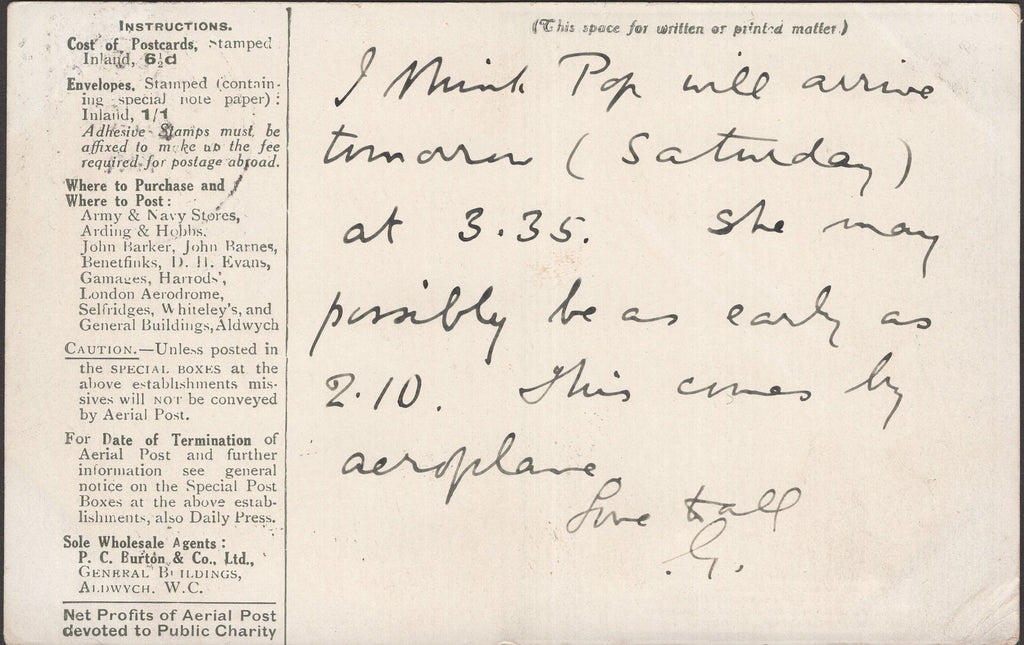 INSTRUCTIONS.
Cost of Postcards, Stamped
Inland, 6½d
Envelopes, Stamped (contain-
ing special note paper):
Inland, 1/1
Adhesive Stamps must be
affixed to make up the fee
required for postage abroad.
Where to Purchase and
Where to Post:
Army & Navy Stores,
Arding & Hobbs,
John Barker, John Barnes,
Benetfinks, D. H. Evans,
Gamages, Harrods',
London Aerodrome,
Selfridges, Whiteley's, and
General Buildings, Aldwych
CAUTION.—Unless posted in
the SPECIAL BOXES at the
above establishments mis-
sives will NOT be conveyed
by Aerial Post.
For Date of Termination of
Aerial Post and further
information see general
notice on the Special Post
Boxes at the above estab-
lishments, also Daily Press.
Sole Wholesale Agents:
P. C. Burton & Co., Ltd.,
GENERAL BUILDINGS,
ALDWYCH. W.C.
Net Profits of Aerial Post
devoted to Public Charity
(This space for written or printed matter.)
I think Pop will arrive
tomorrow (Saturday)
at 3.35. She may
possibly be as early as
2.10. This comes by
aeroplane
Love to all
G.